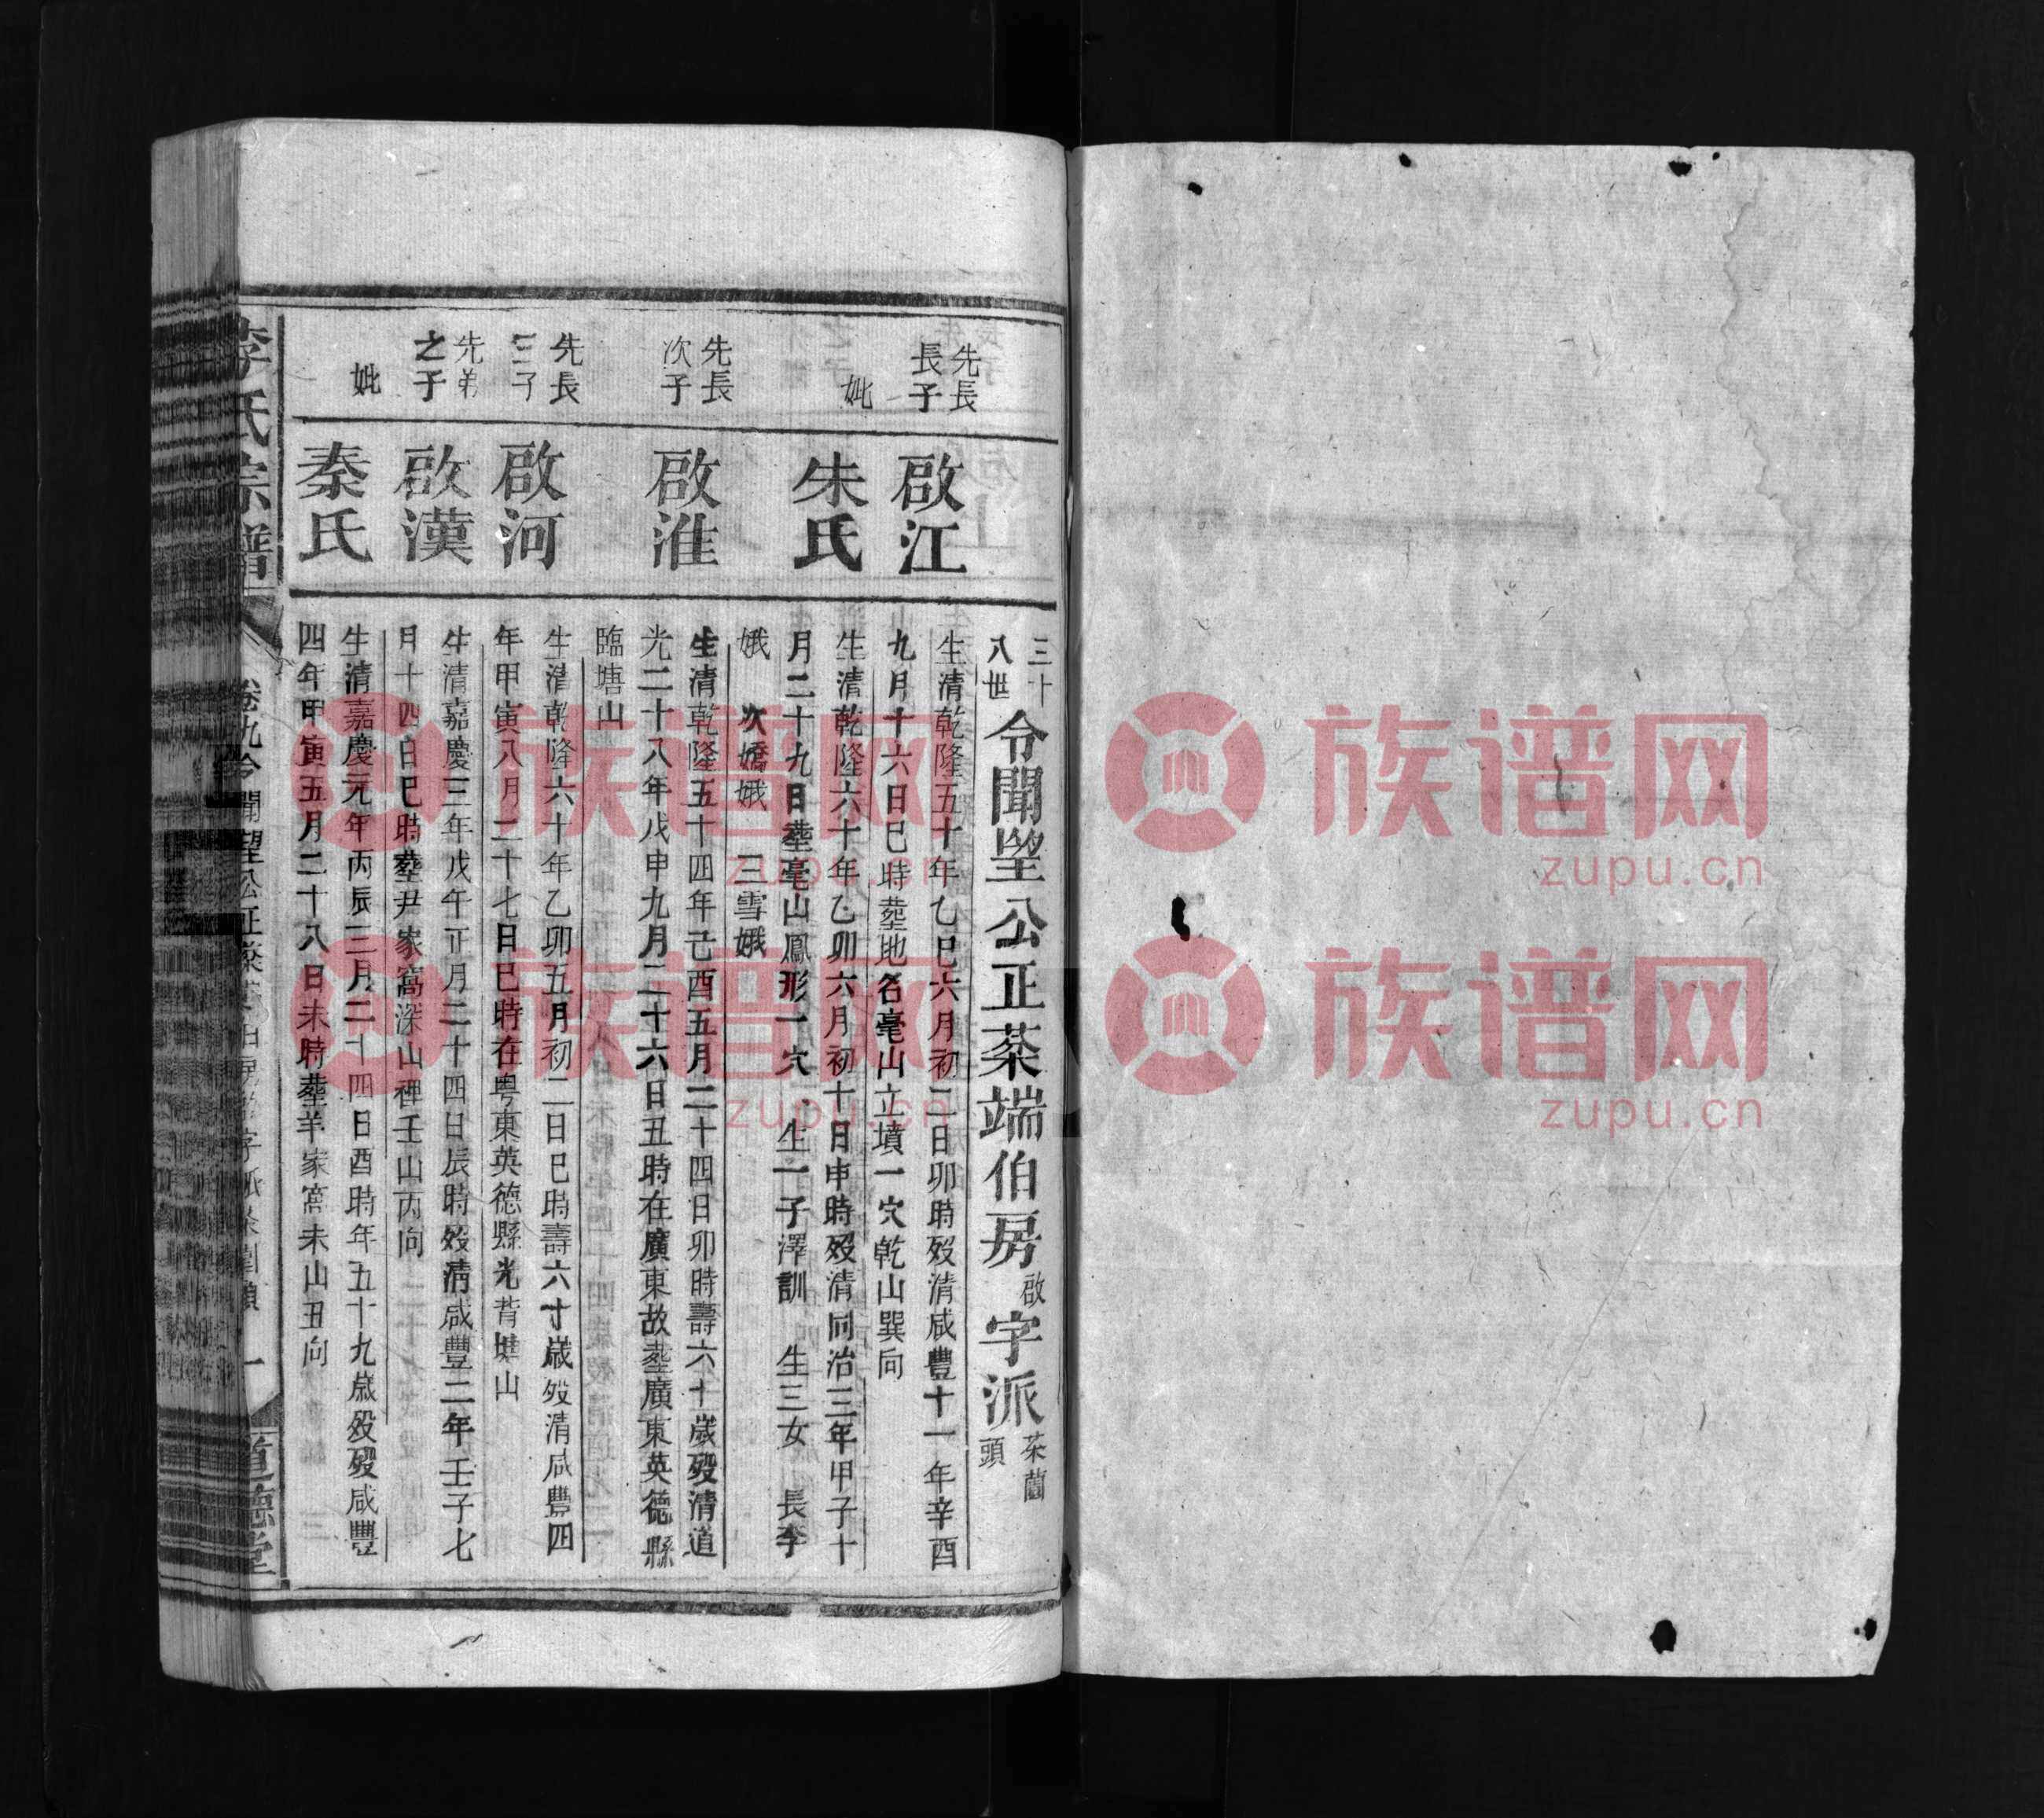 三十八世 令聞望公正棻端伯房 啟 字派 茶蘭頭
先長長子
啟江
生清乾隆五十年乙巳六月初二日卯時殁清咸豐十一年辛酉
九月十六日巳時塟地名毫山立墳一穴乾山巽向
妣
朱氏
生清乾隆六十年乙卯六月初十日申時殁清同治三年甲子十
月二十九日塟毫山鳳形一穴、生一子澤訓 生三女 長李
娥 次嬌娥 三雪娥
先長次子
啟淮
生清乾隆五十四年己酉五月二十四日卯時壽六十歲殁清道
光二十八年戊申九月二十六日丑時在廣東故塟廣東英德縣
臨塘山
先長三子
啟河
生清乾隆六十年乙卯五月初二日巳時壽六十歲殁清咸豐四
年甲寅八月二十七日巳時在粤東英德縣光背山
先弟之子
啟漢
生清嘉慶三年戊午正月二十四日辰時殁清咸豐二年壬子七
月十四日巳時塟尹家窩深山裡壬山丙向
妣
秦氏
生清嘉慶元年丙辰三月二十四日酉時年五十九歲殁殁咸豐
四年甲寅五月二十八日未時塟羊家窩未山丑向
李氏宗譜
卷九 令聞望公正
一
道德堂
族谱网
zupu.cn
族谱网
zupu.cn
族谱网
zupu.cn
族谱网
zupu.cn